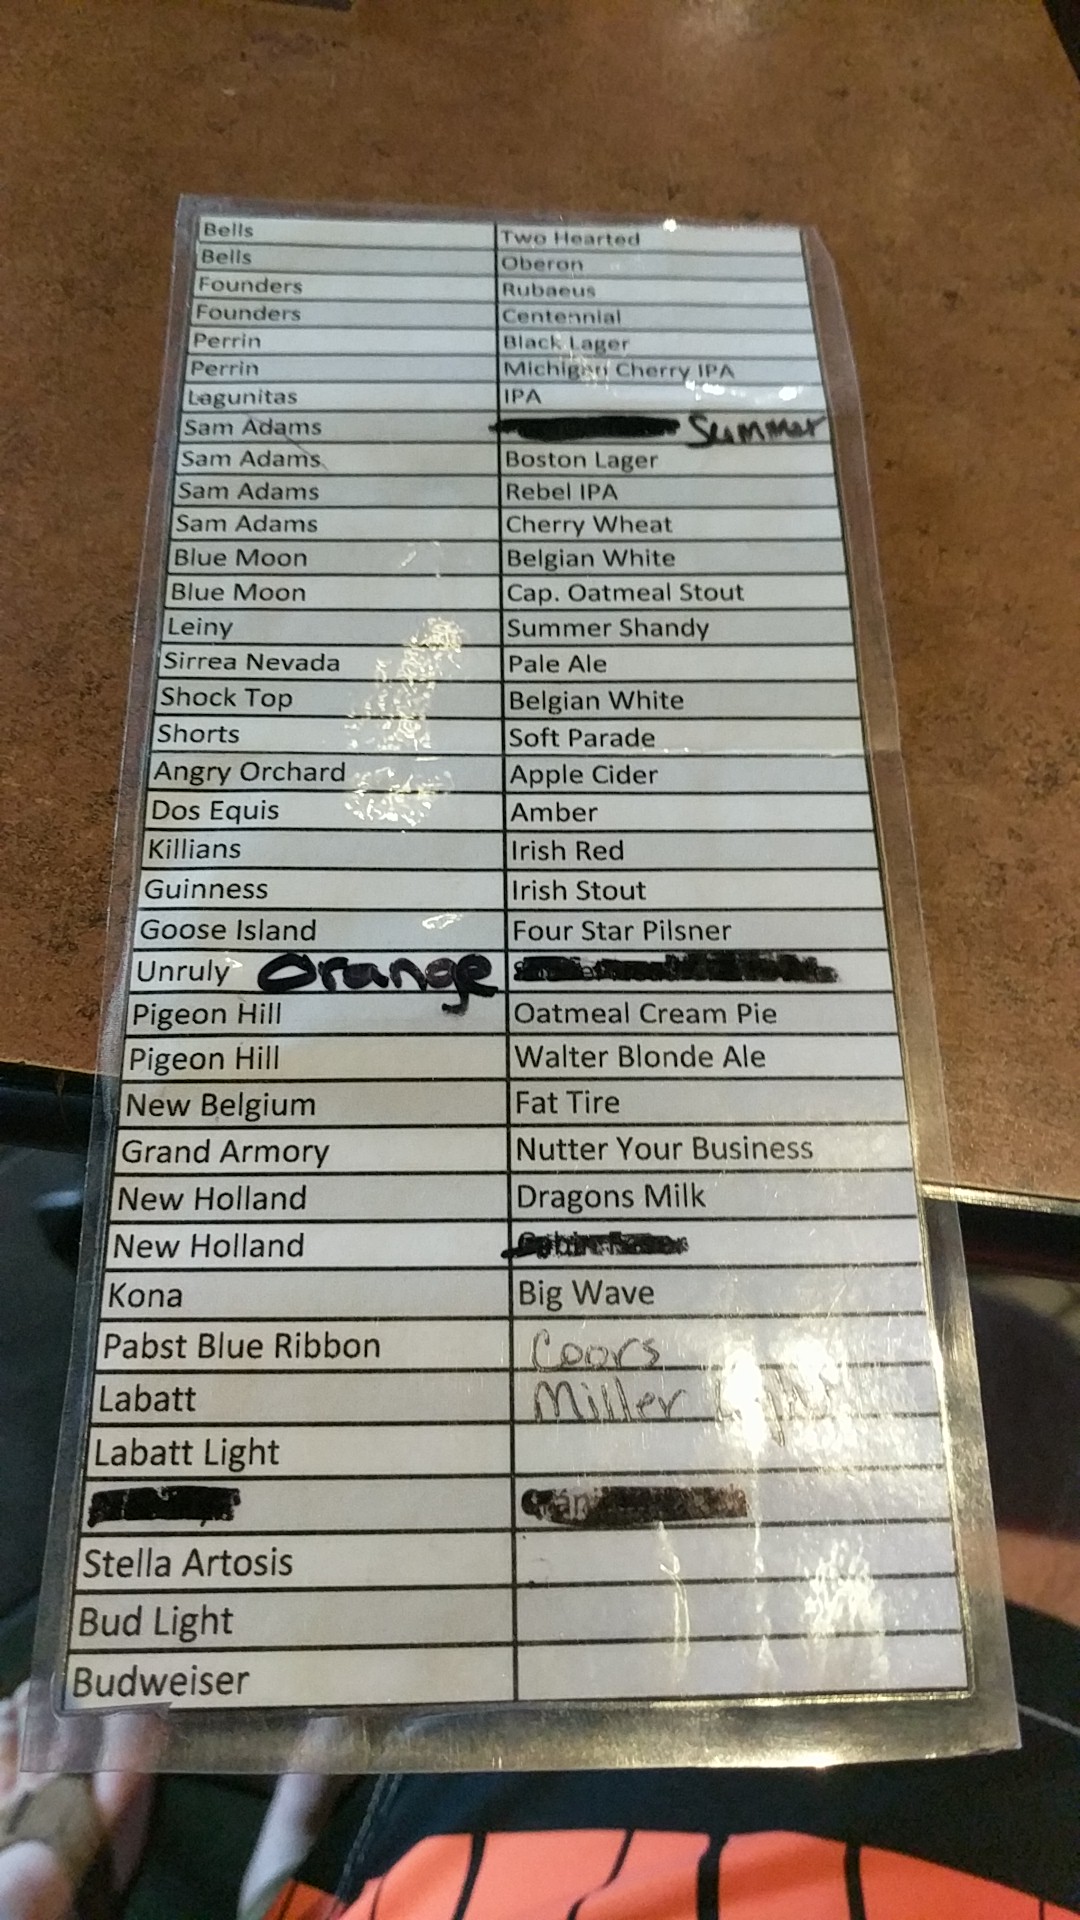 Bells Two Hearted
Bells Oberon
Founders Rubaeus
Founders Centennial
Perrin Black Lager
Perrin Michigan Cherry IPA
Lagunitas IPA
Sam Adams Summer
Sam Adams Boston Lager
Sam Adams Rebel IPA
Sam Adams Cherry Wheat
Blue Moon Belgian White
Blue Moon Cap. Oatmeal Stout
Leiny Summer Shandy
Sirrea Nevada Pale Ale
Shock Top Belgian White
Shorts Soft Parade
Angry Orchard Apple Cider
Dos Equis Amber
Killians Irish Red
Guinness Irish Stout
Goose Island Four Star Pilsner
Unruly Orange
Pigeon Hill Oatmeal Cream Pie
Pigeon Hill Walter Blonde Ale
New Belgium Fat Tire
Grand Armory Nutter Your Business
New Holland Dragons Milk
New Holland
Kona Big Wave
Pabst Blue Ribbon Coors
Labatt Miller Light
Labatt Light
Stella Artosis
Bud Light
Budweiser